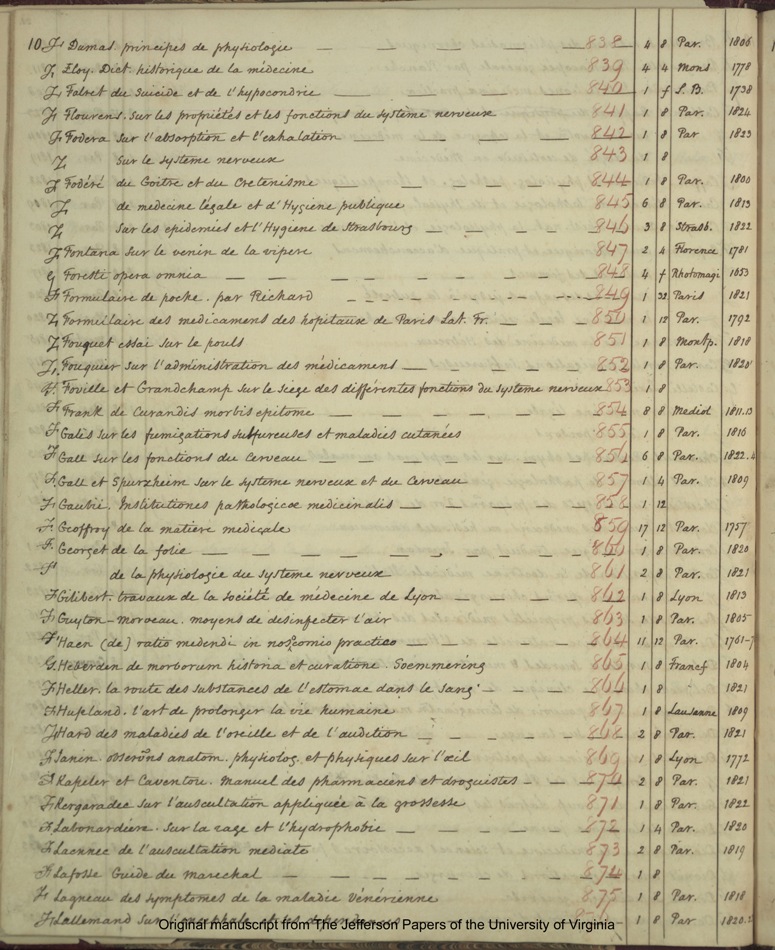 10. F. Dumas. principes de physiologie — 838 4 8 Par. 1806
F. Eloy. Dict. historique de la médecine 839 4 4 Mons 1778
F. Falret du Suicide et de l'hypocondrie — 840 1 f
F. Flourens. Sur les propriétés et les fonctions du système nerveux 841 1 8 Par. 1824
F. Fodera sur l'absorption et l'exhalation — 842 1 8 Par 1823
F. sur le systeme nerveux 843 1 8
F. Fodéré du Goitre et du Cretenisme — 844 1 8 Par. 1800
F. de medecine légale et d'Hygiene publique 845 6 8 Par. 1813
F. sur les epidemies et l'Hygiene de Strasbourg — 846 3 8 Strasb. 1822
F. Fontana sur le venin de la vipere 847 2 4 Florence 1781
Foresti opera omnia — 848 4 f Rhotomagi 1653
F. Formulaire de poche. par Richard — 849 1 32 Paris 1821
F. Formulaire des medicamens des hopitaux de Paris Lat. Fr. — 850 1 12 Par. 1792
F. Fouquet essai sur le pouls 851 1 8 Montp. 1818
F. Fouquier sur l'administration des médicamens — 852 1 8 Par. 1820
F. Foville et Grandchamp sur le siege des différentes fonctions du systeme nerveux 853 1 8
F. Frank de Curandis morbis epitome — 854 8 8 Mediol 1811.13
F. Galès sur les fumigations sulfureuses et maladies cutanées 855 1 8 Par. 1816
F. Gall sur les fonctions du Cerveau — 856 6 8 Par. 1822.
F. Gall et Spurzheim sur le systeme nerveux et du Cerveau 857 1 4 Par. 1809
F. Gaubii. Institutiones pathologicæ medicinalis — 858 1 12
F. Geoffroy de la matiere medicale 859 17 12 Par. 1757
F. Georget de la folie — 860 1 8 Par. 1820
F. de la physiologie du systeme nerveux 861 2 8 Par. 1821
F. Gilibert. travaux de la société de médecine de Lyon — 862 1 8 Lyon 1813
F. Guyton-morveau. moyens de desinfecter l'air 863 1 8 Par. 1805
F. Haen (de) ratio medendi in nosocomio practico — 864 11 12 Par. 1761-7
Heberden de morborum historia et curatione. Soemmering 865 1 8 Francf 1804
F. Heller. la route des substances de l'estomac dans le sang — 866 1 8 1821
F. Hufland. l'art de prolonger la vie humaine 867 1 8 Lausanne 1809
F. Itard des maladies de l'oreille et de l'audition — 868 2 8 Par. 1821
F. Janin. observñs anatom. physiolog. et physiques sur l'œil 869 1 8 Lyon 1772
F. Kapeler et Caventou. Manuel des pharmaciens et droguistes — 870 2 8 Par. 1821
F. Kergaradec sur l'auscultation appliquée à la grossesse 871 1 8 Par. 1822
F. Labonardiere. sur la rage et l'hydrophobie — 872 1 4 Par. 1820
F. Laennec de l'auscultation mediate 873 2 8 Par. 1819
F. Lafosse Guide du marechal — 874 1 8
F. Lagneau des symptomes de la maladie vénérienne 875 1 8 Par. 1818
F. Lallemand sur 1 8 Par 1820.
Original manuscript from The Jefferson Papers of the University of Virginia